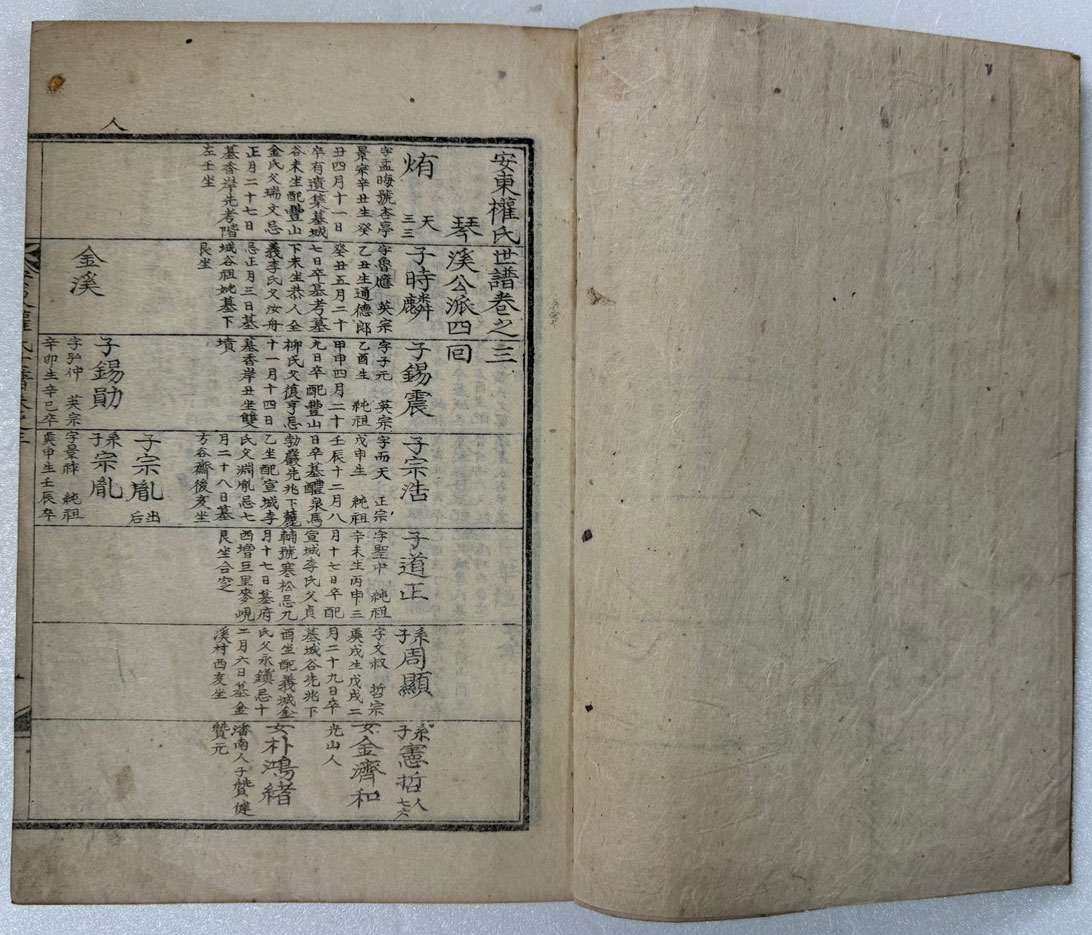 人
安東權氏世譜卷之三
琴溪公派四回
㶭 天三三
字孟晦號杏亭
景宗辛丑生癸
丑四月十一日
卒有遺藁墓城
谷未坐配豊山
金氏父瑞文忌
正月二十七日
墓香岸先考階
左壬坐
子時麟
字魯應 英宗
乙丑生通德郎
癸丑五月二十
七日卒墓考墓
下未坐恭人全
義李氏父汝舟
忌正月三日墓
城谷祖妣墓下
艮坐
子錫震
字子元 英宗
乙酉生 純祖
甲申四月二十
九日卒配豊山
柳氏父復亨忌
十一月十四日
墓香岸丑坐雙
墳
子宗浩
字而天 正宗
戊申生 純祖
壬辰十二月八
日卒墓醴泉馬
勃巖先兆下麓
乙坐配宣城李
氏父淵胤忌七
月二十八日墓
方谷齋後亥坐
子道正
字聖中 純祖
辛未生丙申三
月十七日卒配
宣城李氏父貞
輔號寒松忌九
月十七日墓府
西增巨里麥峴
艮坐合窆
系子周顯
字文叔 哲宗
庚戌生戊戌二
月二十九日卒
墓城谷先兆下
酉坐配義城金
氏父永鎭忌十
二月六日墓金
溪村西亥坐
系子憲哲 人七六
女金濟和
光山人
女朴鴻緖
潘南人子贊健
贊元
子宗胤 出后
金溪
子錫勛
字㢸仲 英宗
辛卯生辛巳卒
系子宗胤
字景悖 純祖
庚申生壬辰卒